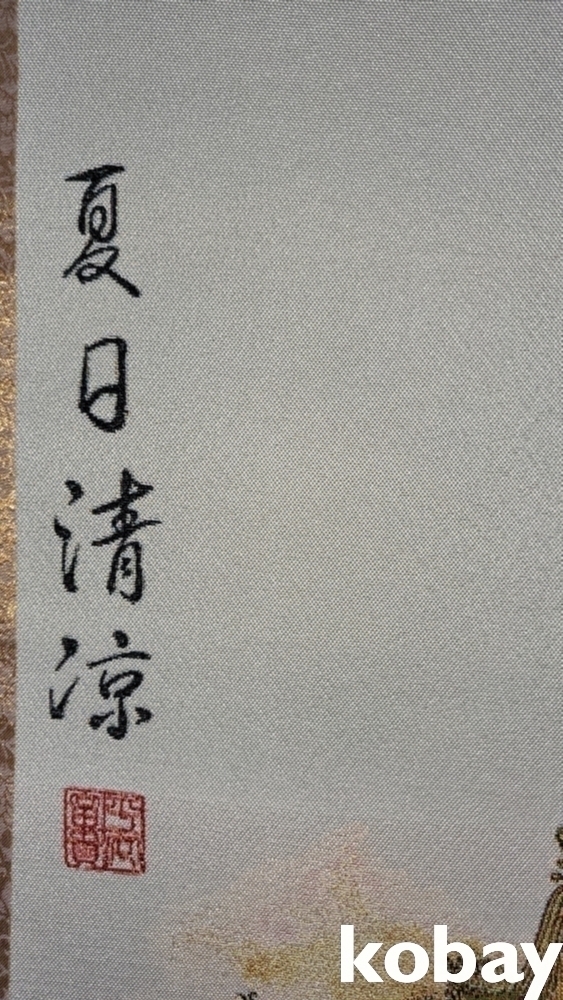 夏日清凉
kobay